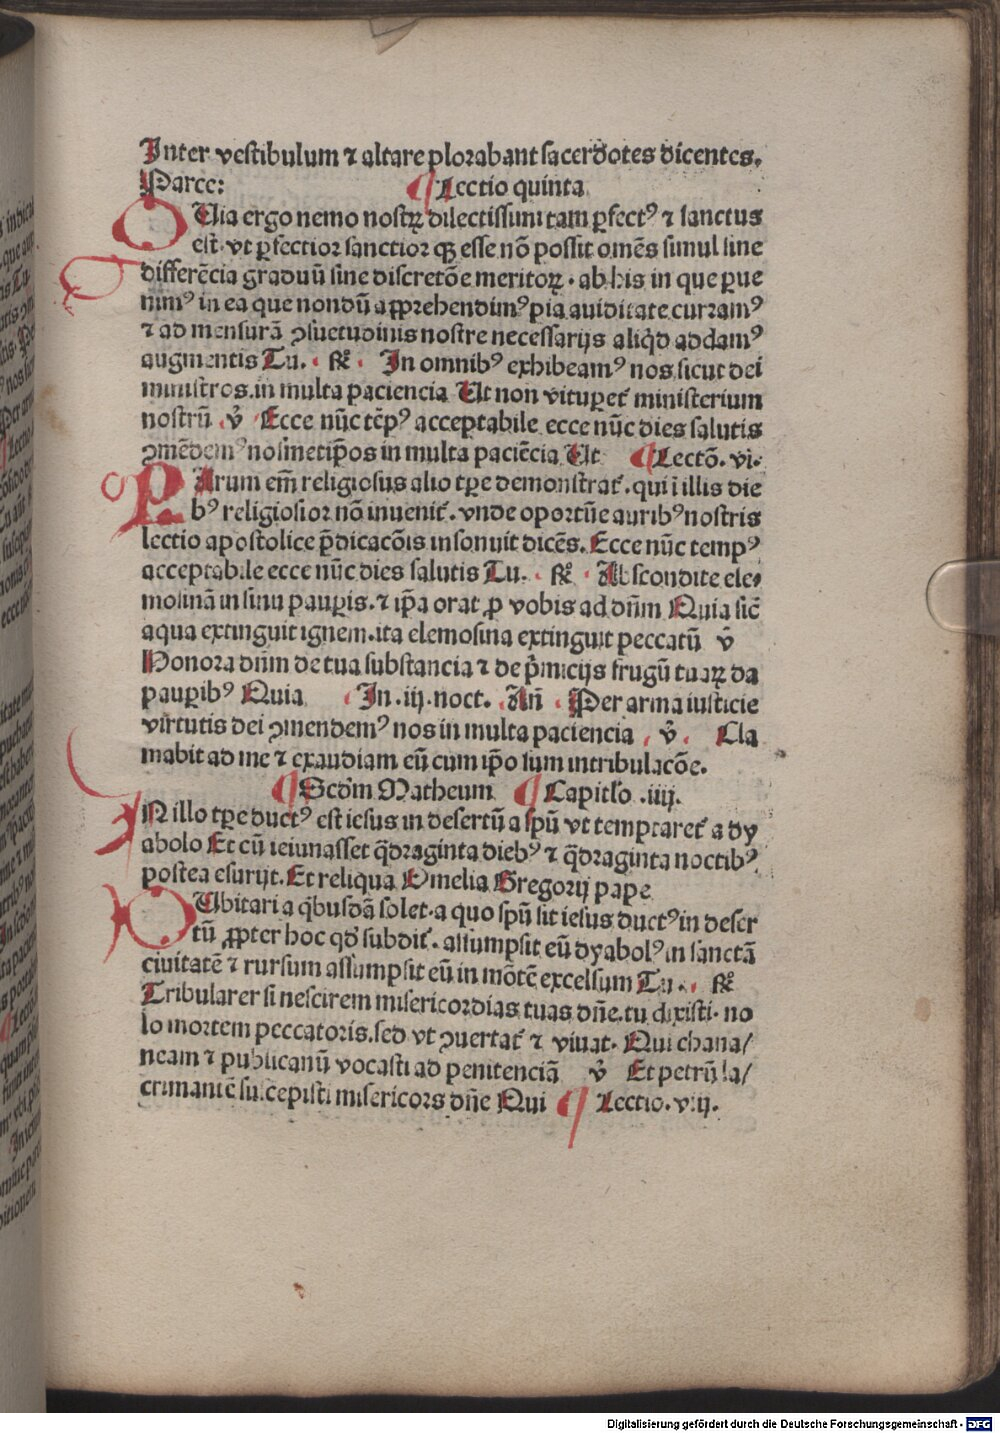 Inter vestibulum ⁊ altare plorabant sacerdotes dicentes.
Parce: ¶ Lectio quinta
QUia ergo nemo nostrꝝ dilectissimi tam ꝑfectꝰ ⁊ sanctus
est. vt ꝑfectior sanctior qꝫ esse nō possit omēs simul sine
differēcia graduū sine discretōe meritoꝝ. ab his in que ꝑue
nimꝰ in ea que nondū apprehendimꝰ pia auiditate curramꝰ
⁊ ad mensurā ꝯsuetudinis nostre necessarijs aliqͥd addamꝰ
augmentis Tu. ℟ In omnibꝰ exhibeamꝰ nos sicut dei
ministros. in multa paciencia Ut non vituꝑet᷑ ministerium
nostrū ℣ Ecce nūc tēpꝰ acceptabile ecce nūc dies salutis
ꝯmēdemꝰ nosmetip̄os in multa paciēcia Ut ¶ Lectō. vi.
PArum em̄ religiosus alio tꝑe demonstrat᷑. qui ī illis die
bꝰ religiosior nō inuenit᷑. vnde oportūe auribꝰ nostris
lectio apostolice p̄dicacōis insonuit dicēs. Ecce nūc tempꝰ
acceptabile ecce nūc dies salutis Tu. ℟ Abscondite ele⸗
mosinā in sinu pauꝑis. ⁊ ip̄a orat ꝓ vobis ad dn̄m Quia sic̄
aqua extinguit ignem. ita elemosina extinguit peccatū ℣
Honora dn̄m de tua substancia ⁊ de pͥmicijs frugū tuaꝝ da
pauꝑibꝰ Quia In .iij. noct. An̄ Per arma iusticie
virtutis dei ꝯmendemꝰ nos in multa paciencia ℣ Cla
mabit ad me ⁊ exaudiam eū cum ip̄o sum in tribulacōe.
¶ Scd̄m Matheum ¶ Capitl̄o .iiij.
IN illo tꝑe ductꝰ est iesus in desertū a spū vt temptaret᷑ a dy
abolo Et cū ieiunasset qͣdraginta diebꝰ ⁊ qͣdraginta noctibꝰ
postea esurijt. Et reliqua Omelia Gregorij pape
DUbitari a qͥbusdā solet. a quo spū sit iesus ductꝰ in deser
tū ꝓpter hoc qd̄ subdit᷑. assumpsit eū dyabolꝰ in sanctā
ciuitatē ⁊ rursum assumpsit eū in mōtē excelsum Tu. ℟
Tribularer si nescirem misericordias tuas dn̄e. tu dixisti. no
lo mortem peccatoris. sed vt ꝯuertat᷑ ⁊ viuat. Qui chana/
neam ⁊ publicanū vocasti ad penitenciā ℣ Et petrū la/
crimantē suscepisti misericors dn̄e Qui ¶ Lectio. viij.
Digitalisierung gefördert durch die Deutsche Forschungsgemeinschaft - DFG